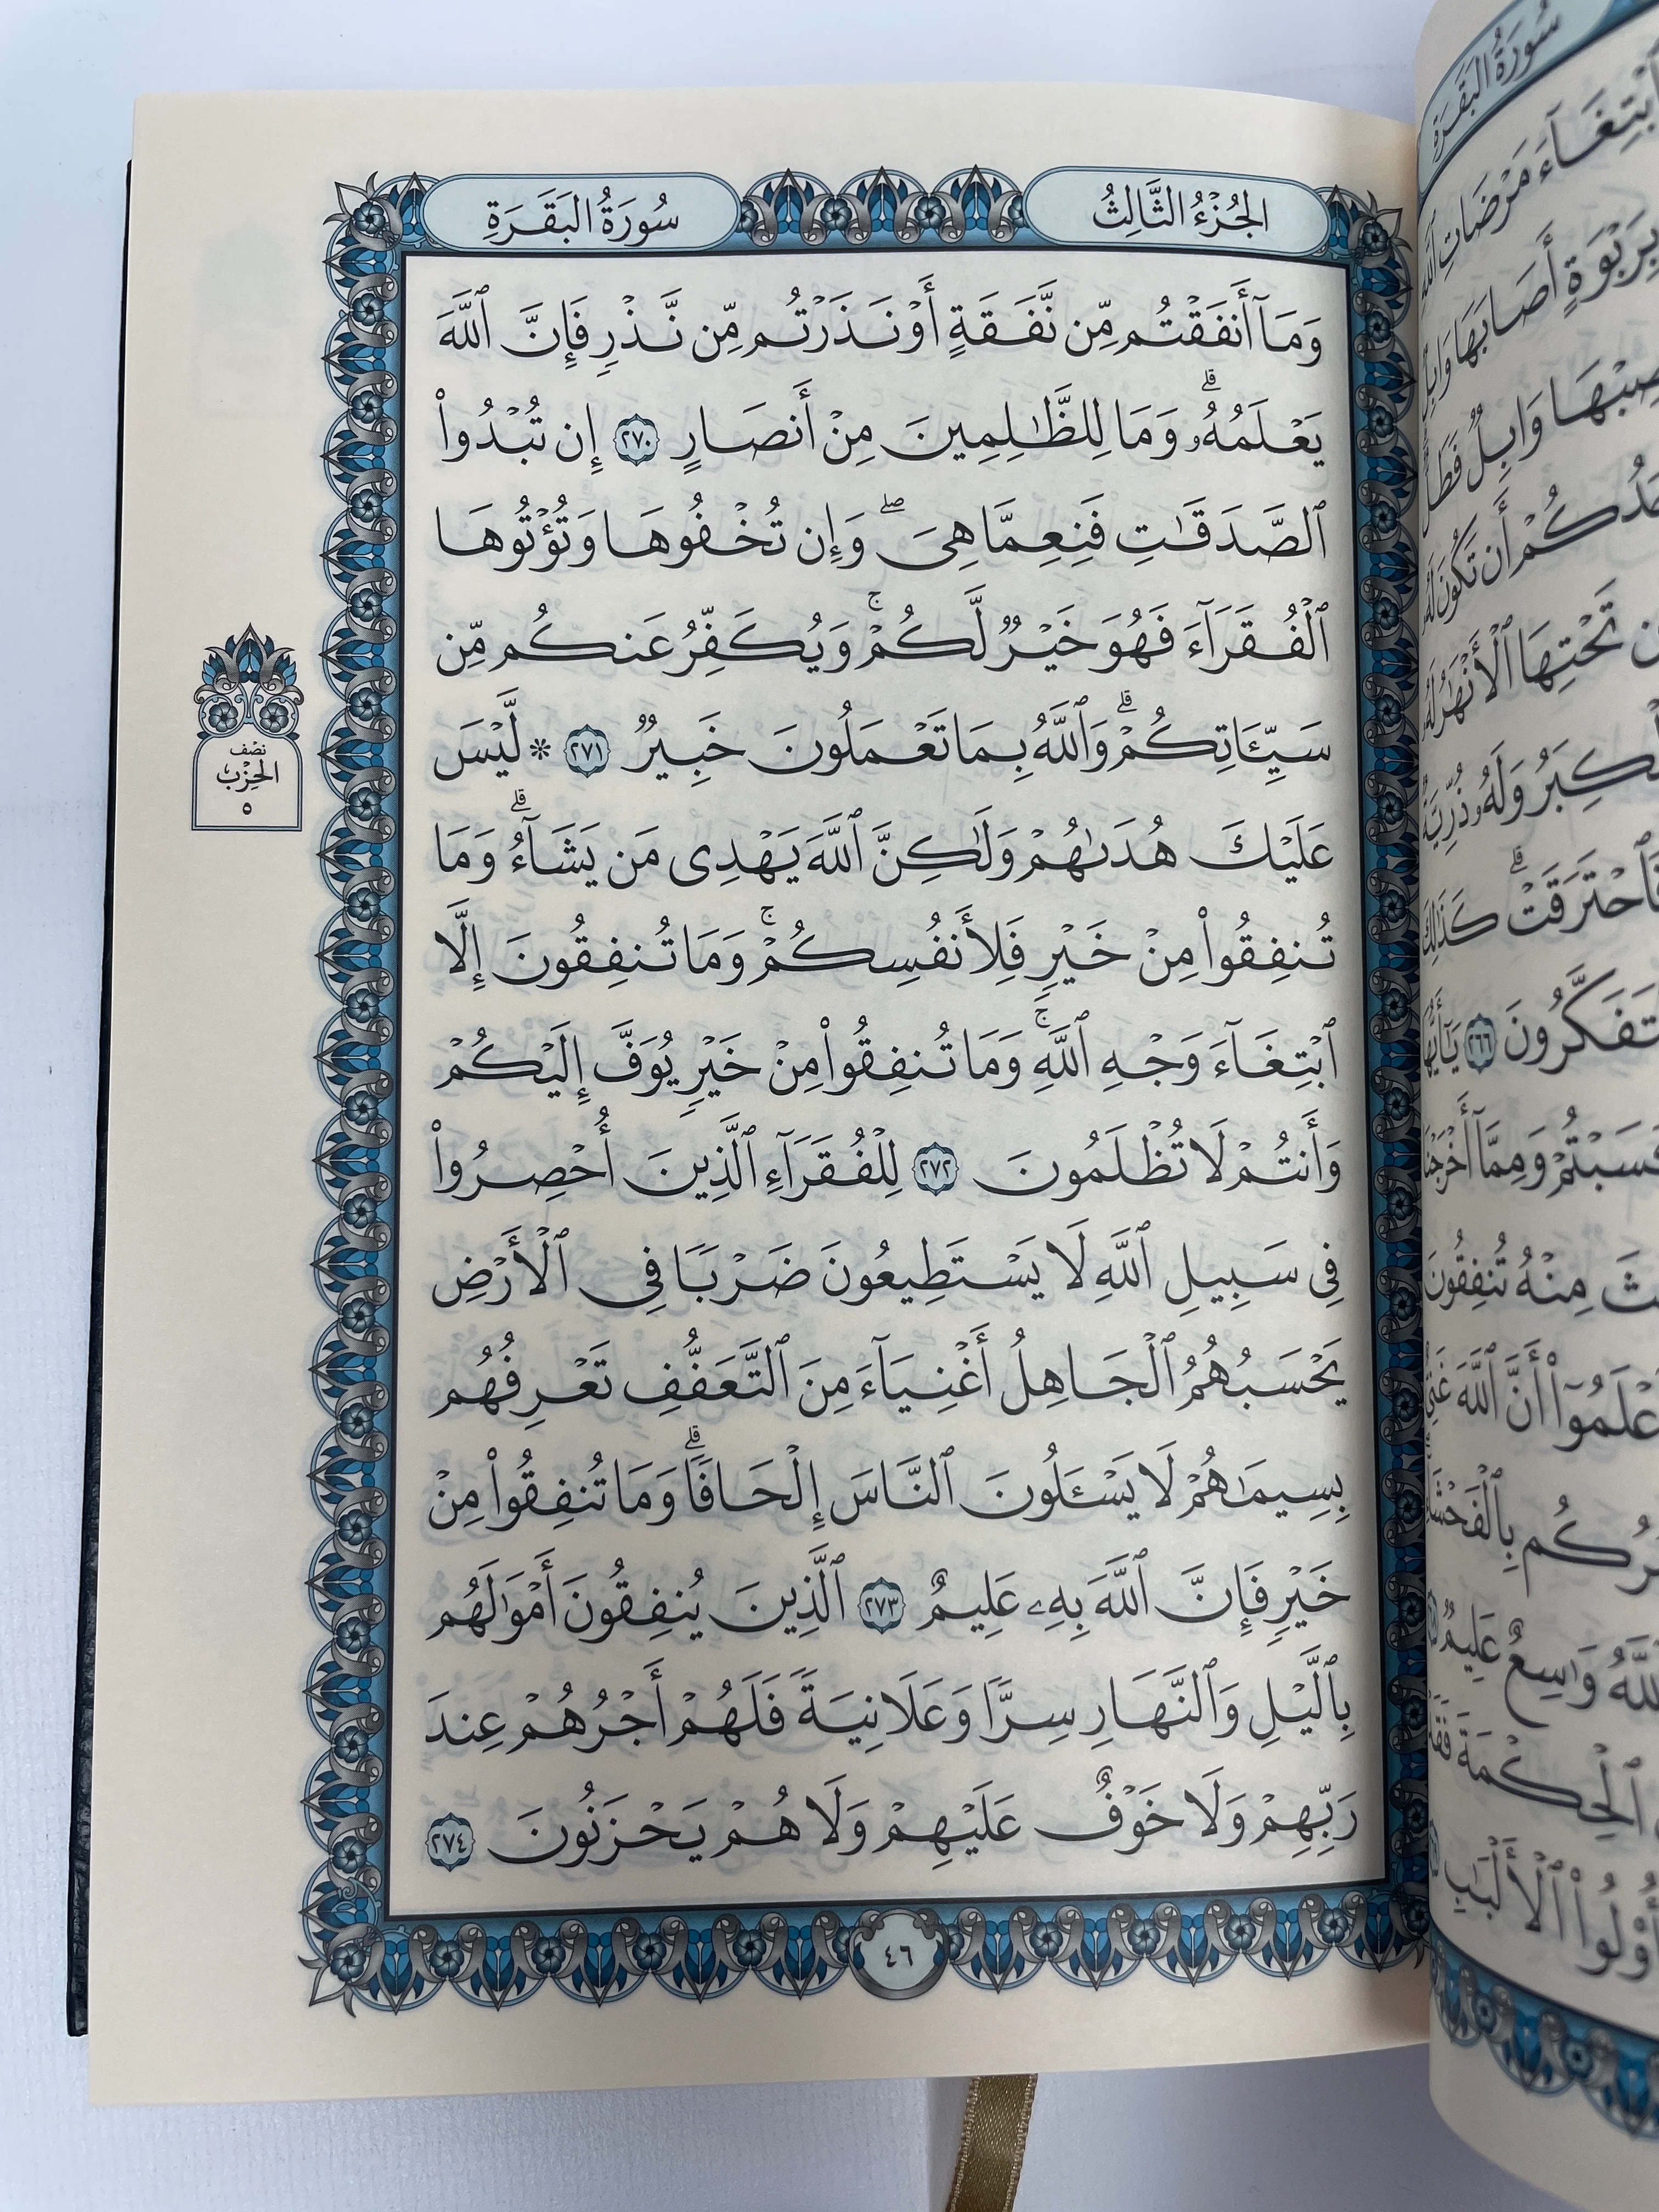 الجُزْءُ الثَّالِثُ
سُورَةُ البَقَرَةِ
وَمَآ أَنفَقْتُم مِّن نَّفَقَةٍ أَوْ نَذَرْتُم مِّن نَّذْرٍ فَإِنَّ ٱللَّهَ
يَعْلَمُهُۥۗ وَمَا لِلظَّٰلِمِينَ مِنْ أَنصَارٍ ٢٧٠ إِن تُبْدُوا۟
ٱلصَّدَقَٰتِ فَنِعِمَّا هِىَۖ وَإِن تُخْفُوهَا وَتُؤْتُوهَا
ٱلْفُقَرَآءَ فَهُوَ خَيْرٌ لَّكُمْۚ وَيُكَفِّرُ عَنكُم مِّن
سَيِّـَٔاتِكُمْۗ وَٱللَّهُ بِمَا تَعْمَلُونَ خَبِيرٌ ٢٧١ * لَّيْسَ
عَلَيْكَ هُدَىٰهُمْ وَلَٰكِنَّ ٱللَّهَ يَهْدِى مَن يَشَآءُۗ وَمَا
تُنفِقُوا۟ مِنْ خَيْرٍ فَلِأَنفُسِكُمْۚ وَمَا تُنفِقُونَ إِلَّا
ٱبْتِغَآءَ وَجْهِ ٱللَّهِۚ وَمَا تُنفِقُوا۟ مِنْ خَيْرٍ يُوَفَّ إِلَيْكُمْ
وَأَنتُمْ لَا تُظْلَمُونَ ٢٧٢ لِلْفُقَرَآءِ ٱلَّذِينَ أُحْصِرُوا۟
فِى سَبِيلِ ٱللَّهِ لَا يَسْتَطِيعُونَ ضَرْبًا فِى ٱلْأَرْضِ
يَحْسَبُهُمُ ٱلْجَاهِلُ أَغْنِيَآءَ مِنَ ٱلتَّعَفُّفِ تَعْرِفُهُم
بِسِيمَٰهُمْ لَا يَسْـَٔلُونَ ٱلنَّاسَ إِلْحَافًاۗ وَمَا تُنفِقُوا۟ مِنْ
خَيْرٍ فَإِنَّ ٱللَّهَ بِهِۦ عَلِيمٌ ٢٧٣ ٱلَّذِينَ يُنفِقُونَ أَمْوَٰلَهُم
بِٱلَّيْلِ وَٱلنَّهَارِ سِرًّا وَعَلَانِيَةً فَلَهُمْ أَجْرُهُمْ عِندَ
رَبِّهِمْ وَلَا خَوْفٌ عَلَيْهِمْ وَلَا هُمْ يَحْزَنُونَ ٢٧٤
٤٦
نصف
الحِزْب
٥
سُورَةُ البَقَرَةِ
ٱبْتِغَآءَ مَرْضَاتِ ٱللَّهِ
بِرَبْوَةٍ أَصَابَهَا وَابِلٌ
وَابِلٌ فَطَلٌّ
أَن تَكُونَ لَهُۥ
تَحْتِهَا ٱلْأَنْهَٰرُ لَهُۥ
ٱلْكِبَرُ وَلَهُۥ ذُرِّيَّةٌ
فَٱحْتَرَقَتْۗ كَذَٰلِكَ
٢٦٦ يَٰٓأَيُّهَا
وَمِمَّآ أَخْرَجْنَا
مِنْهُ تُنفِقُونَ
أَنَّ ٱللَّهَ غَنِىٌّ
بِٱلْفَحْشَآءِ
وَٰسِعٌ عَلِيمٌ
ٱلْحِكْمَةَ فَقَدْ
أُو۟لُوا۟ ٱلْأَلْبَٰبِ